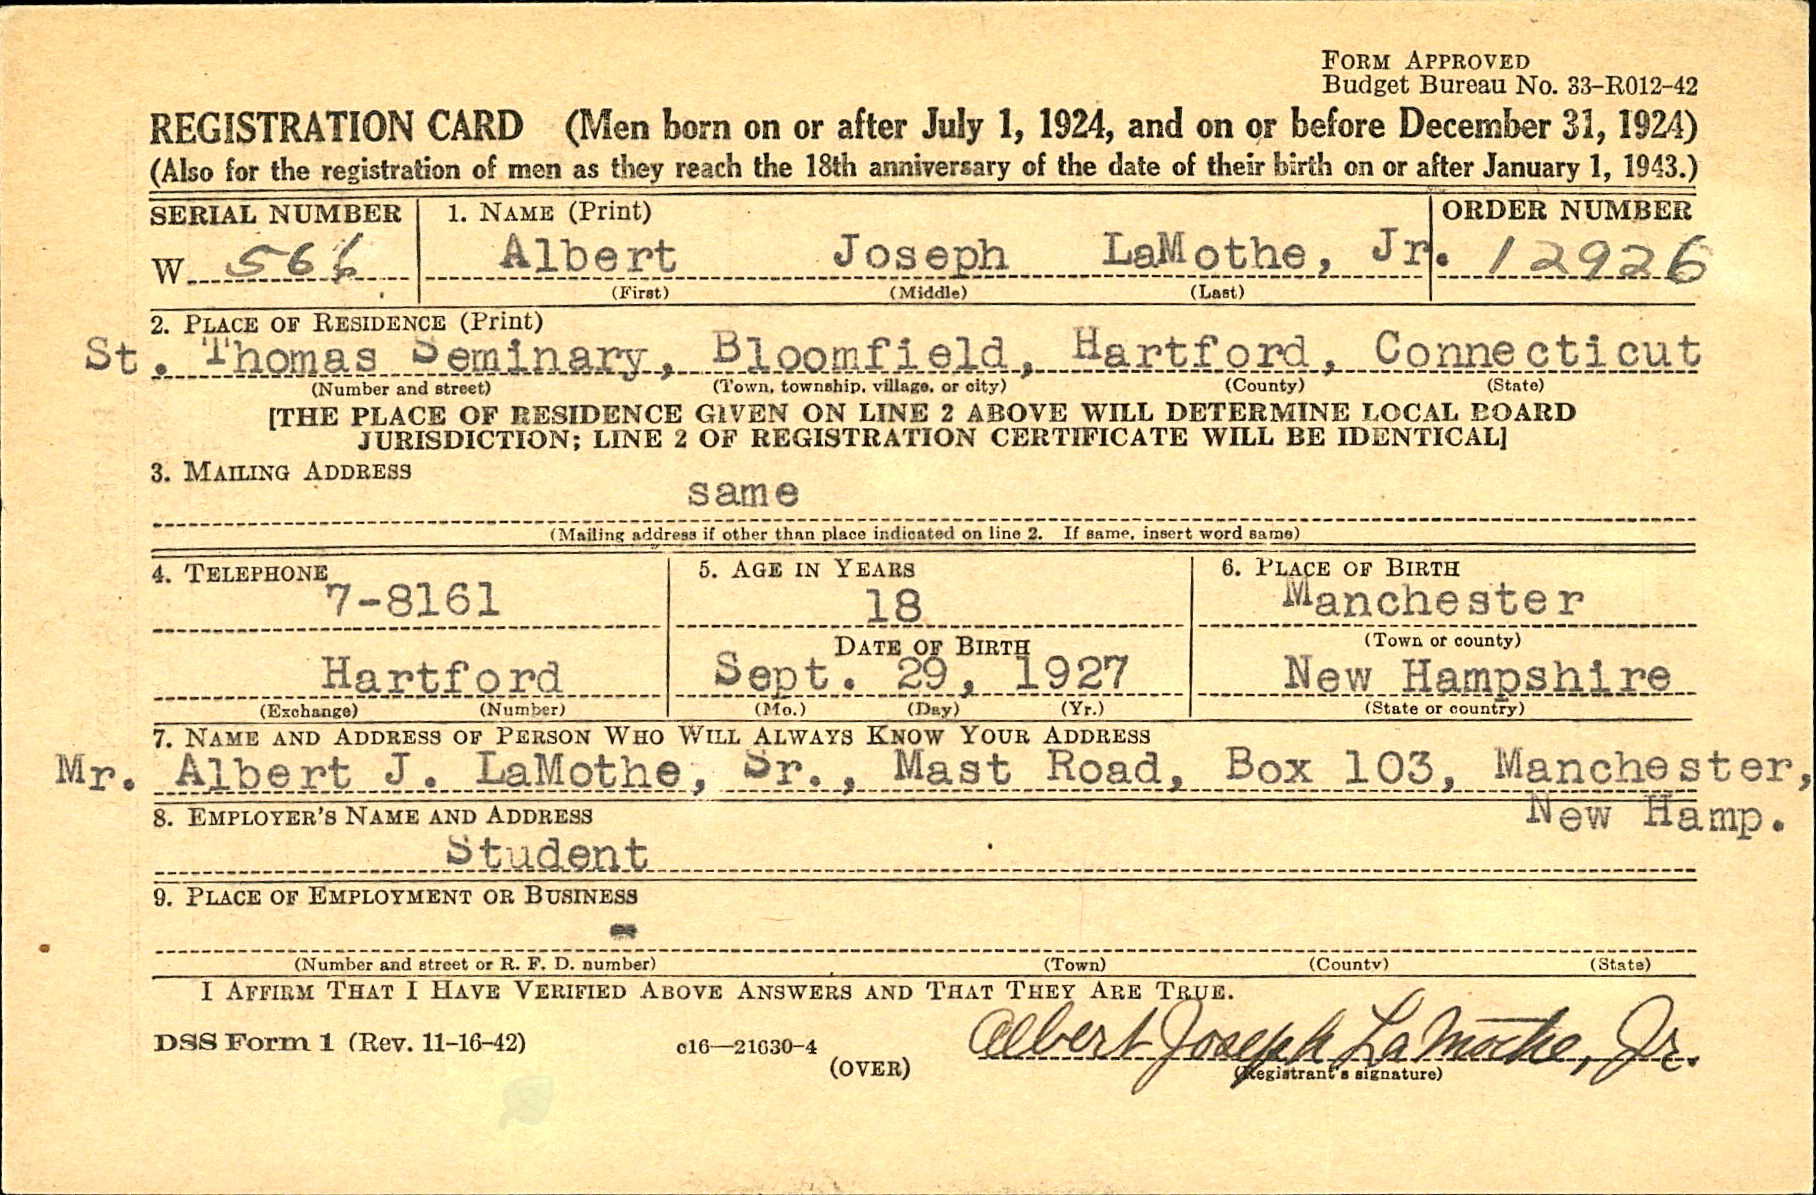 FORM APPROVED
Budget Bureau No. 33-R012-42
REGISTRATION CARD (Men born on or after July 1, 1924, and on or before December 31, 1924)
(Also for the registration of men as they reach the 18th anniversary of the date of their birth on or after January 1, 1943.)
SERIAL NUMBER 1. NAME (Print) ORDER NUMBER
W 566 Albert Joseph LaMothe, Jr. 12926
(First) (Middle) (Last)
2. PLACE OF RESIDENCE (Print)
St. Thomas Seminary, Bloomfield, Hartford, Connecticut
(Number and street) (Town, township, village, or city) (County) (State)
[THE PLACE OF RESIDENCE GIVEN ON LINE 2 ABOVE WILL DETERMINE LOCAL BOARD
JURISDICTION; LINE 2 OF REGISTRATION CERTIFICATE WILL BE IDENTICAL]
3. MAILING ADDRESS
same
(Mailing address if other than place indicated on line 2. If same, insert word same)
4. TELEPHONE 5. AGE IN YEARS 6. PLACE OF BIRTH
7-8161 18 Manchester
DATE OF BIRTH (Town or county)
Hartford Sept. 29, 1927 New Hampshire
(Exchange) (Number) (Mo.) (Day) (Yr.) (State or country)
7. NAME AND ADDRESS OF PERSON WHO WILL ALWAYS KNOW YOUR ADDRESS
Mr. Albert J. LaMothe, Sr., Mast Road, Box 103, Manchester,
New Hamp.
8. EMPLOYER'S NAME AND ADDRESS
Student
9. PLACE OF EMPLOYMENT OR BUSINESS
(Number and street or R. F. D. number) (Town) (County) (State)
I AFFIRM THAT I HAVE VERIFIED ABOVE ANSWERS AND THAT THEY ARE TRUE.
DSS Form 1 (Rev. 11-16-42) c16—21630-4 (OVER) Albert Joseph LaMothe, Jr.
(Registrant's signature)